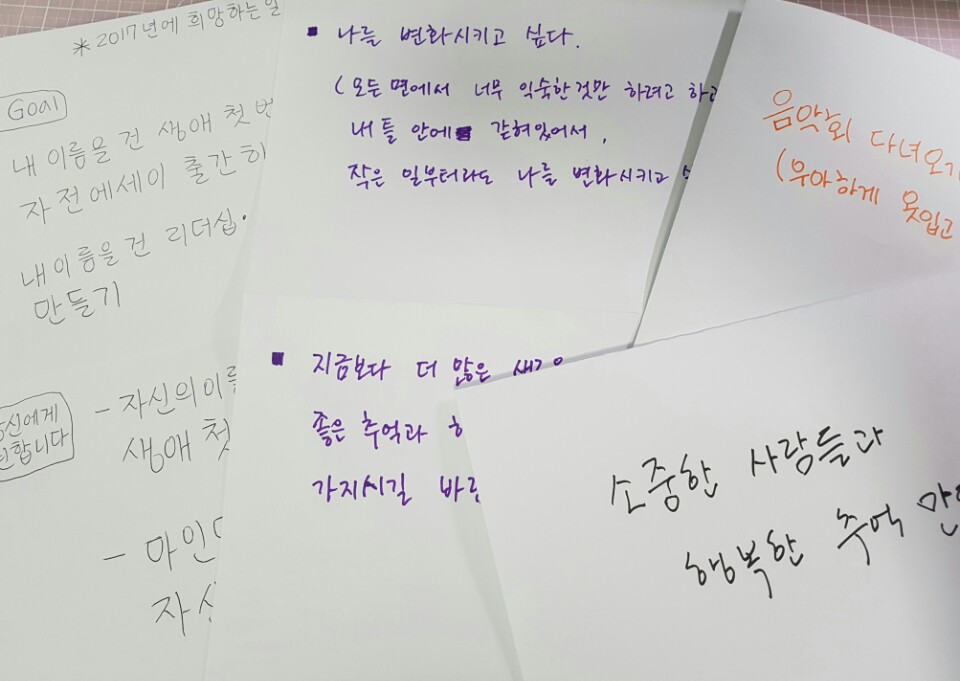 * 2017년에 희망하는 일
Goal
내 이름을 건 생애 첫 번
자전에세이 출간히
내 이름을 건 리더십.
만들기
당신에게
권합니다
- 자신의 이름
생애 첫
- 마인드
자신
■ 나를 변화시키고 싶다.
(모든 면에서 너무 익숙한것만 하려고 하고
내 틀 안에 갇혀있어서,
작은 일부터라도 나를 변화시키고
■ 지금보다 더 많은
좋은 추억과
가지시길
음악회 다녀오기
(우아하게 옷입고
소중한 사람들과
행복한 추억